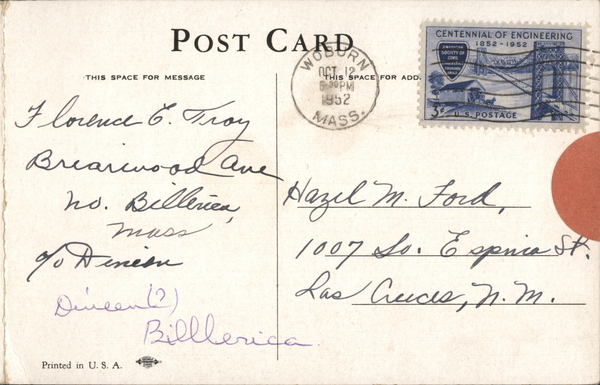 POST CARD
THIS SPACE FOR MESSAGE
THIS SPACE FOR ADD
WOBURN
OCT 12
PM
1952
MASS.
CENTENNIAL OF ENGINEERING
1852-1952
AMERICAN
SOCIETY OF
CIVIL
ENGINEERS
3¢ U.S. POSTAGE
Florence E. Troy
Briarwood Ave
No. Billerica,
Mass
c/o Dineen
Dineen (?)
Billlerica
Hazel M. Ford,
1007 So. Espina St.
Las Cruces, N.M.
Printed in U. S. A.